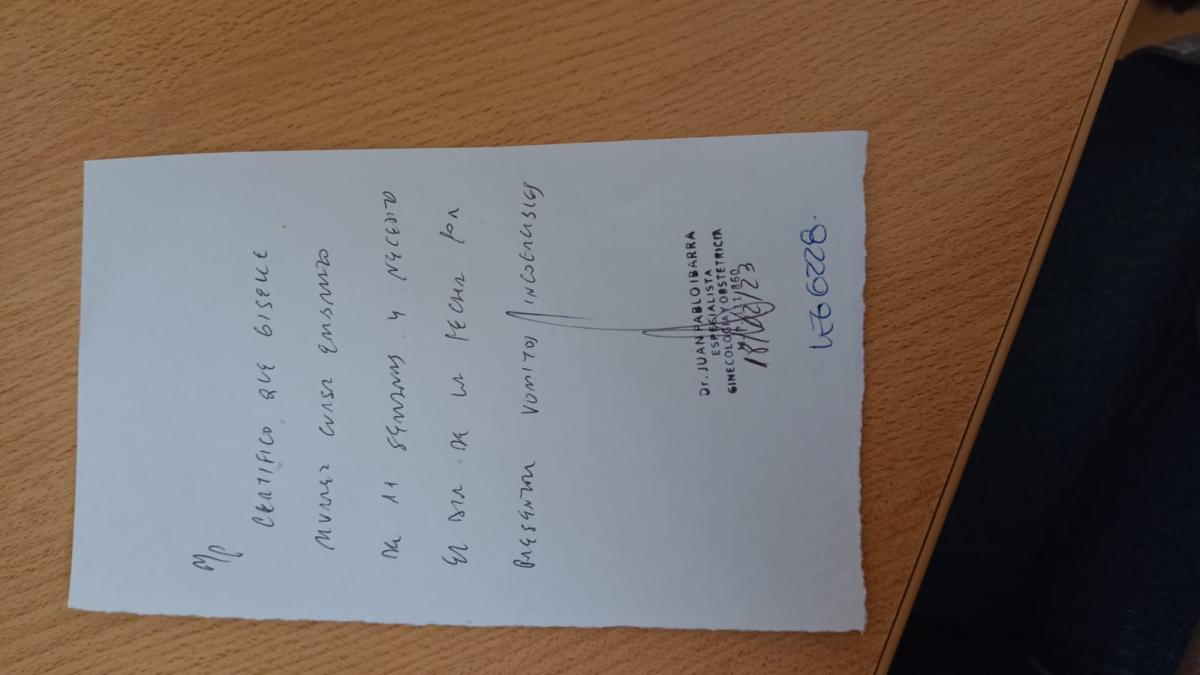 Mp
CERTIFICO QUE GISELLE
CURSA EMBARAZO
DE 11 SEMANAS Y NECESITO
EL DIA DE LA FECHA POR
PRESENTAR VOMITOS INCOERCIBLES
Dr. JUAN PABLO IBARRA
ESPECIALISTA
GINECOLOGIA Y OBSTETRICIA